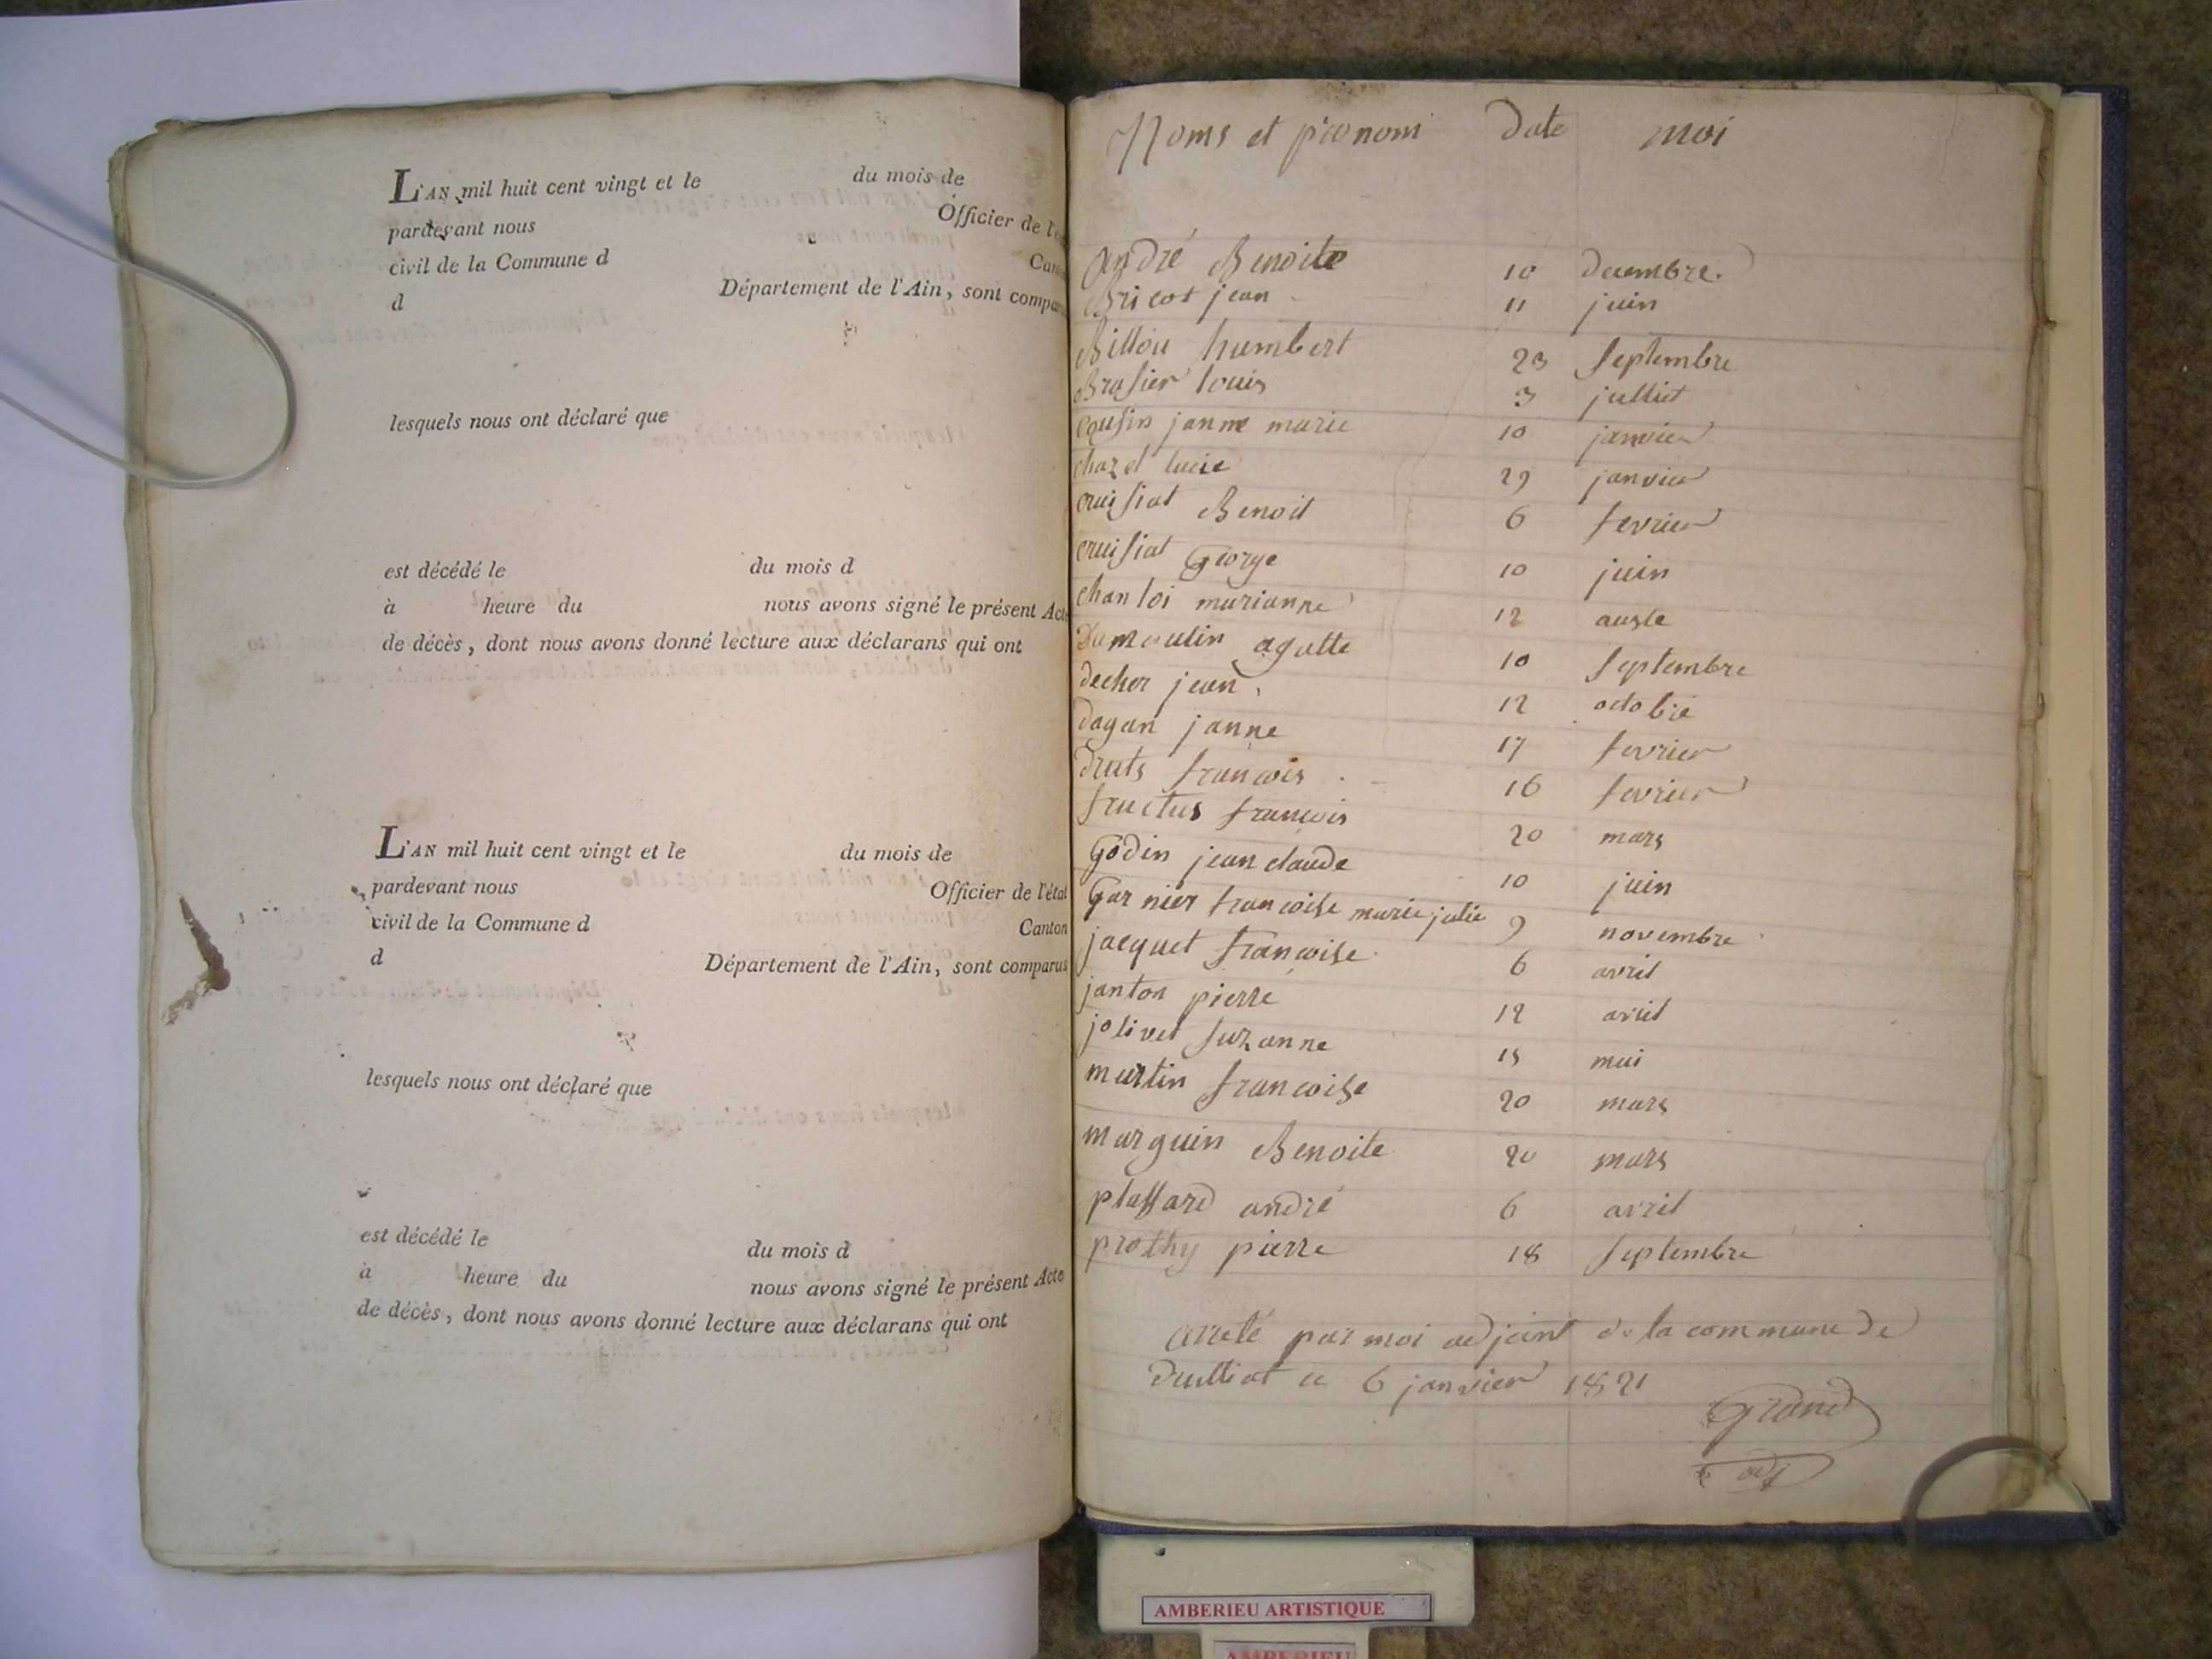 L'AN mil huit cent vingt et le du mois de
pardevant nous Officier de l'e
civil de la Commune d Can
d Département de l'Ain, sont compar
lesquels nous ont déclaré que
est décédé le du mois d
à heure du nous avons signé le présent Acte
de décès, dont nous avons donné lecture aux déclarans qui ont
L'AN mil huit cent vingt et le du mois de
pardevant nous Officier de l'état
civil de la Commune d Canton
d Département de l'Ain, sont comparus
lesquels nous ont déclaré que
est décédé le du mois d
à heure du nous avons signé le présent Acte
de décès, dont nous avons donné lecture aux déclarans qui ont
Noms et prenom date moi
andré Benoite 10 decembre
Bricot jean 11 juin
Billou humbert 23 septembre
Brasier louis 3 julliet
cousin janne marie 10 janvier
chazel lucie 29 janvier
cruisiat Benoit 6 fevrier
cruisiat George 10 juin
chanloi marianne 12 auste
Dumoulin agatte 10 septembre
decher jean 12 octobre
dagan janne 17 fevrier
druts francois 16 fevrier
fructus francois 20 mars
Godin jean claude 10 juin
Garnier francoise marie julie 9 novembre
jacquet francoise 6 avril
janton pierre 12 avril
jolivet suzanne 15 mai
martin francoise 20 mars
marguin Benoite 20 mars
plassard andré 6 avril
prothy pierre 18 septembre
arreté par moi adjoint de la commune de
Druilliat ce 6 janvier 1821
Grand
adj
AMBERIEU ARTISTIQUE
AMBERIEU